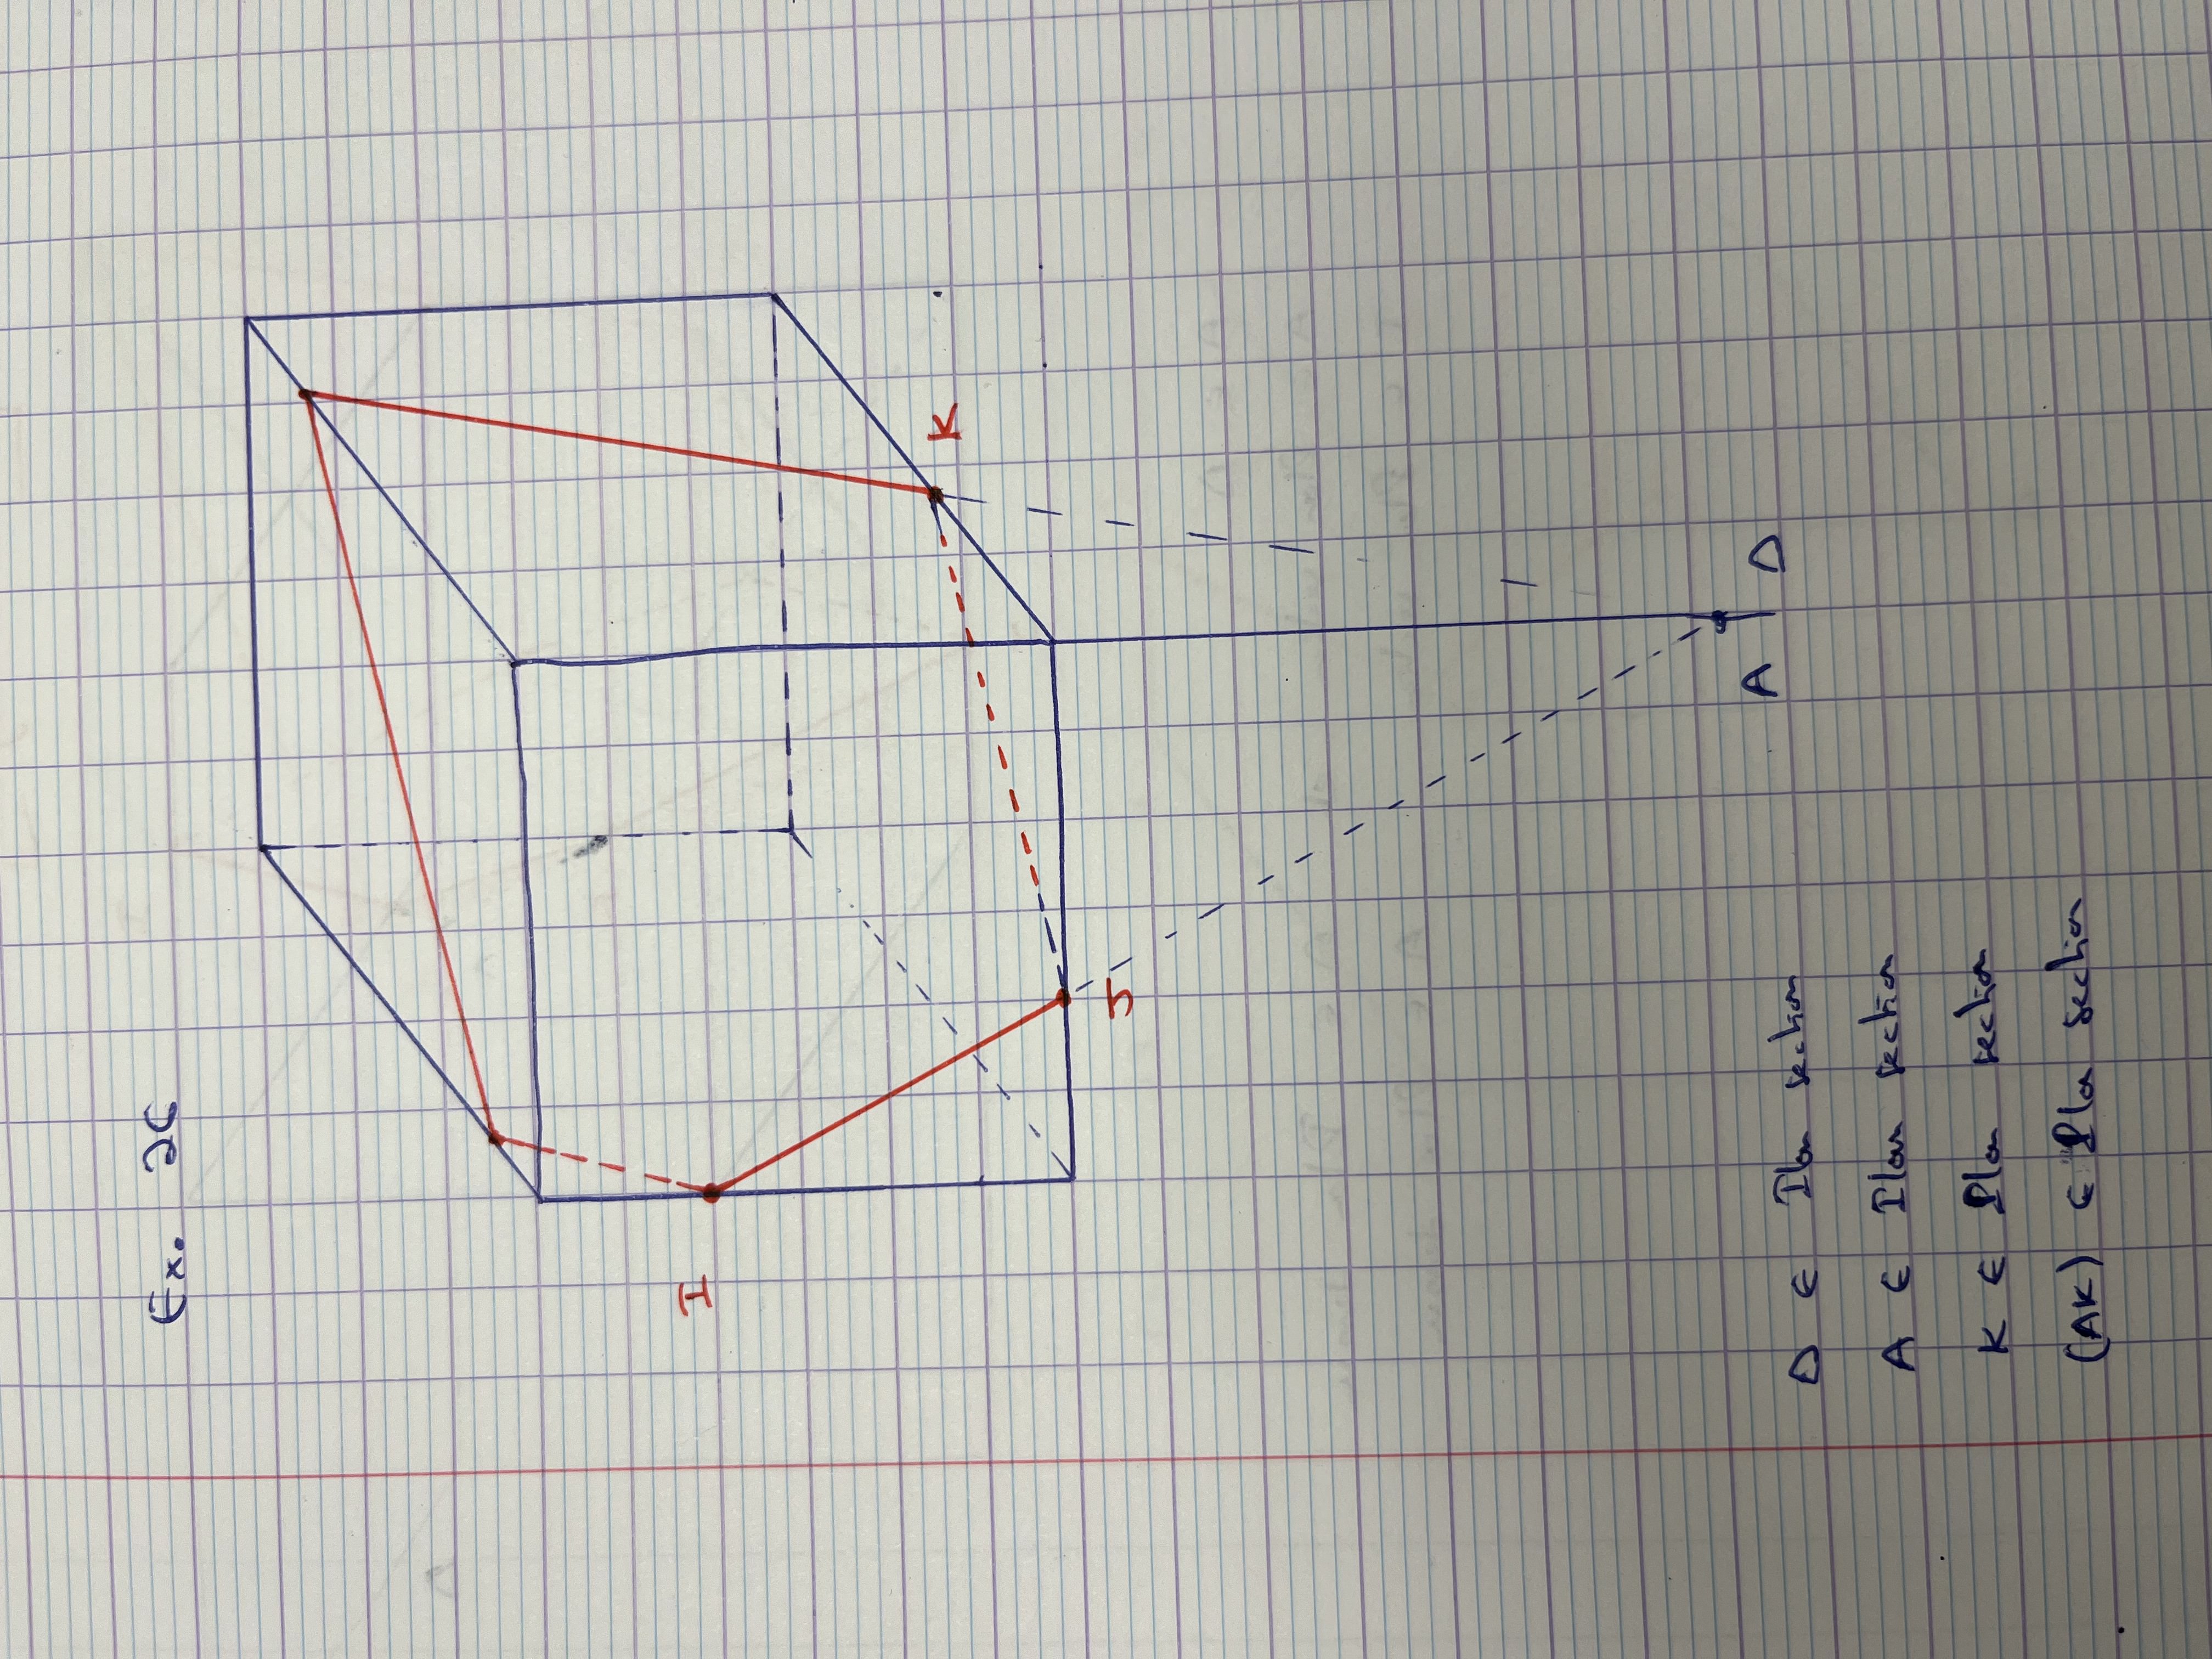 Ex. 26
I
K
J
A D
D ∈ Plan section
A ∈ Plan section
K ∈ Plan section
(AK) ∈ Plan section